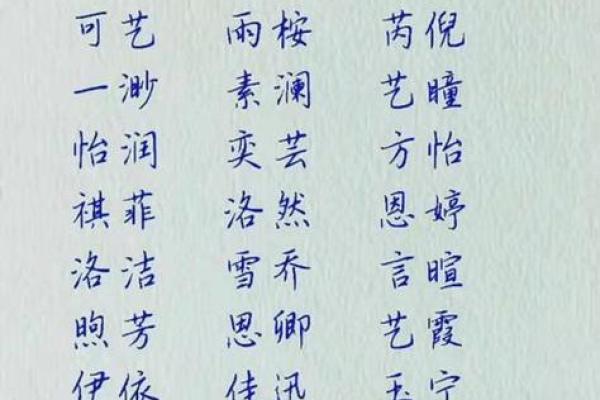 可艺 雨桉 芮倪
一渺 素澜 艺瞳
怡润 奕芸 方怡
祺菲 洛然 恩婷
洛洁 雪乔 言暄
煦芳 思卿 艺霞
伊依 佳迅 玉宁